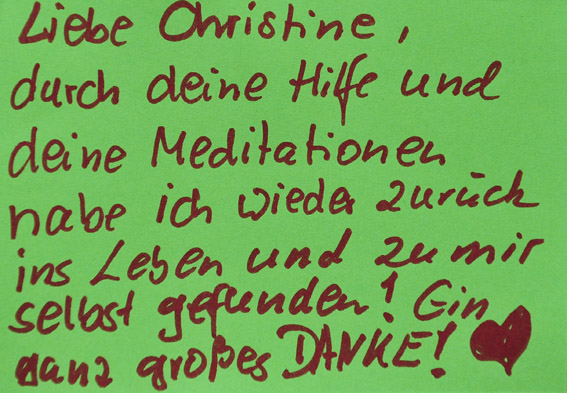 Liebe Christine,
durch deine Hilfe und
deine Meditationen
habe ich wieder zurück
ins Leben und zu mir
selbst gefunden! Ein
ganz großes DANKE!